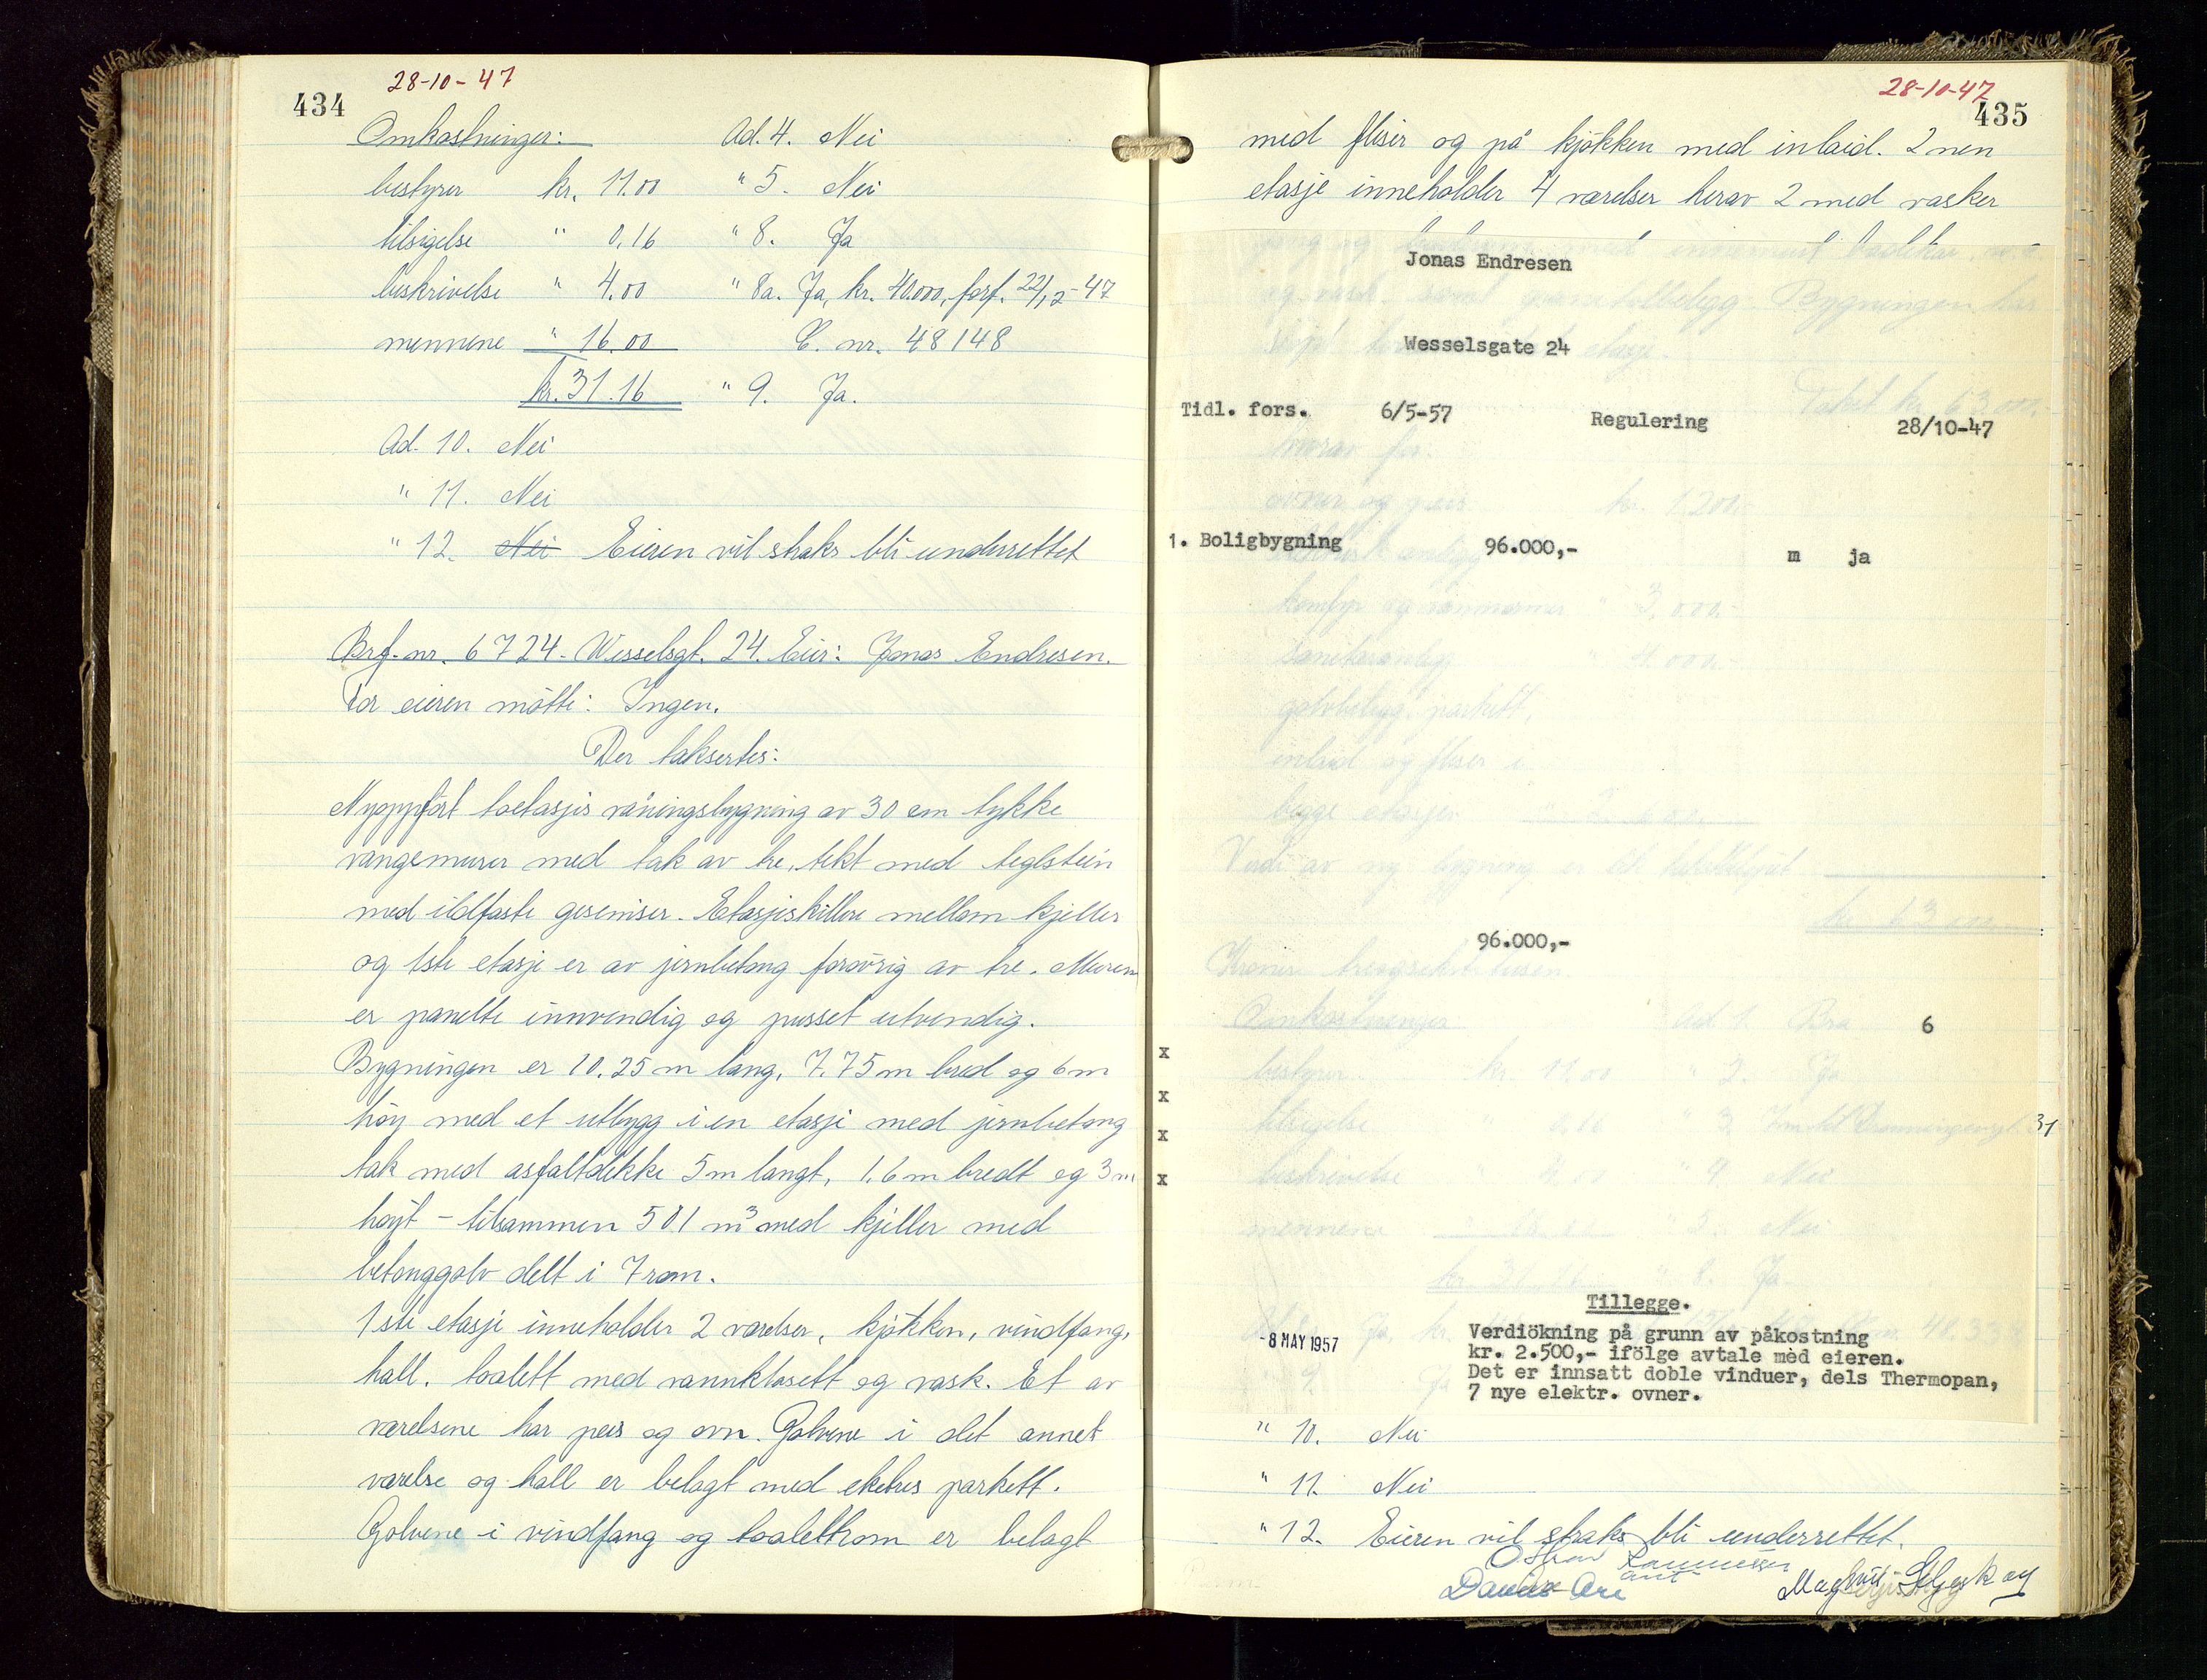 28-10-47
434
Omkostninger: Ad. 4. Nei
bestyrer kr. 11.00 " 5. Nei
tilsigelse " 0.16 " 8. Ja
beskrivelse " 4.00 " 8a. Ja, kr. 40.000,- forf. 22/12-47
mennene " 16.00 C. nr. 48148
kr. 31.16 " 9. Ja.
Ad. 10. Nei
" 11. Nei
" 12. Nei Eieren vil straks bli underrettet
Brf.-nr. 6724 - Wesselsgt. 24. Eier: Jonas Endresen.
For eieren mötte: Ingen.
Der taksertes:
Nyoppfört toetasjes våningsbygning av 30 cm tykke
vangemurer med tak av tre, tekt med teglstein
med ildfaste gesemser. Etasjeskillere mellom kjeller
og 1ste etasje er av jernbetong forövrig av tre. Murene
er panelte innvendig og pusset utvendig.
Bygningen er 10.25 m lang, 7.75 m bred og 6 m
höy med et utbygg i en etasje med jernbetong
tak med asfaltdekke 5 m langt, 1.6 m bredt og 3 m
höyt - tilsammen 501 m³ med kjeller med
betonggolv delt i 7 rom.
1ste etasje inneholder 2 værelser, kjökken, vindfang,
hall, toalett med vannklosett og vask. Et av
værelsene har peis og ovn. Golvene i det annet
værelse og hall er belagt med eketres parkett.
Golvene i vindfang og toalettrom er belagt
28-10-47
435
med fliser og på kjökken med inlaid. 2nen
etasje inneholder 4 værelser herav 2 med vasker
Jonas Endresen
Wesselsgate 24
Tidl. fors. 6/5-57 Regulering 28/10-47
1. Boligbygning 96.000,- m ja
96.000,-
6
x
x
x
x
31
Tillegge.
-8 MAY 1957
Verdiökning på grunn av påkostning
kr. 2.500,- ifölge avtale mèd eieren.
Det er innsatt doble vinduer, dels Thermopan,
7 nye elektr. ovner.
" 10. Nei
" 11. Nei
" 12. Eieren vil straks bli underrettet.